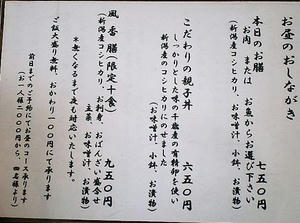 お昼のおしながき
本日のお膳 七五〇円
お肉 または お魚からお選び下さい
(新潟産コシヒカリ、お味噌汁、小鉢、お漬物)
こだわりの親子丼 六五〇円
しっかりとした味の千歳産の有精卵を使い
新潟産のコシヒカリにのせました
(お味噌汁、小鉢、お漬物)
風香膳(限定十食) 九五〇円
(新潟産コシヒカリ、お刺身、おばんざい盛合せ
主菜、お味噌汁、お漬物)
*無くなるまで夜も対応いたします。
ご飯大盛り無料、おかわり一〇〇円にて承ります
前日までのご予約にてお昼のコース承ります
(お一人様二〇〇〇円から 四名様より)